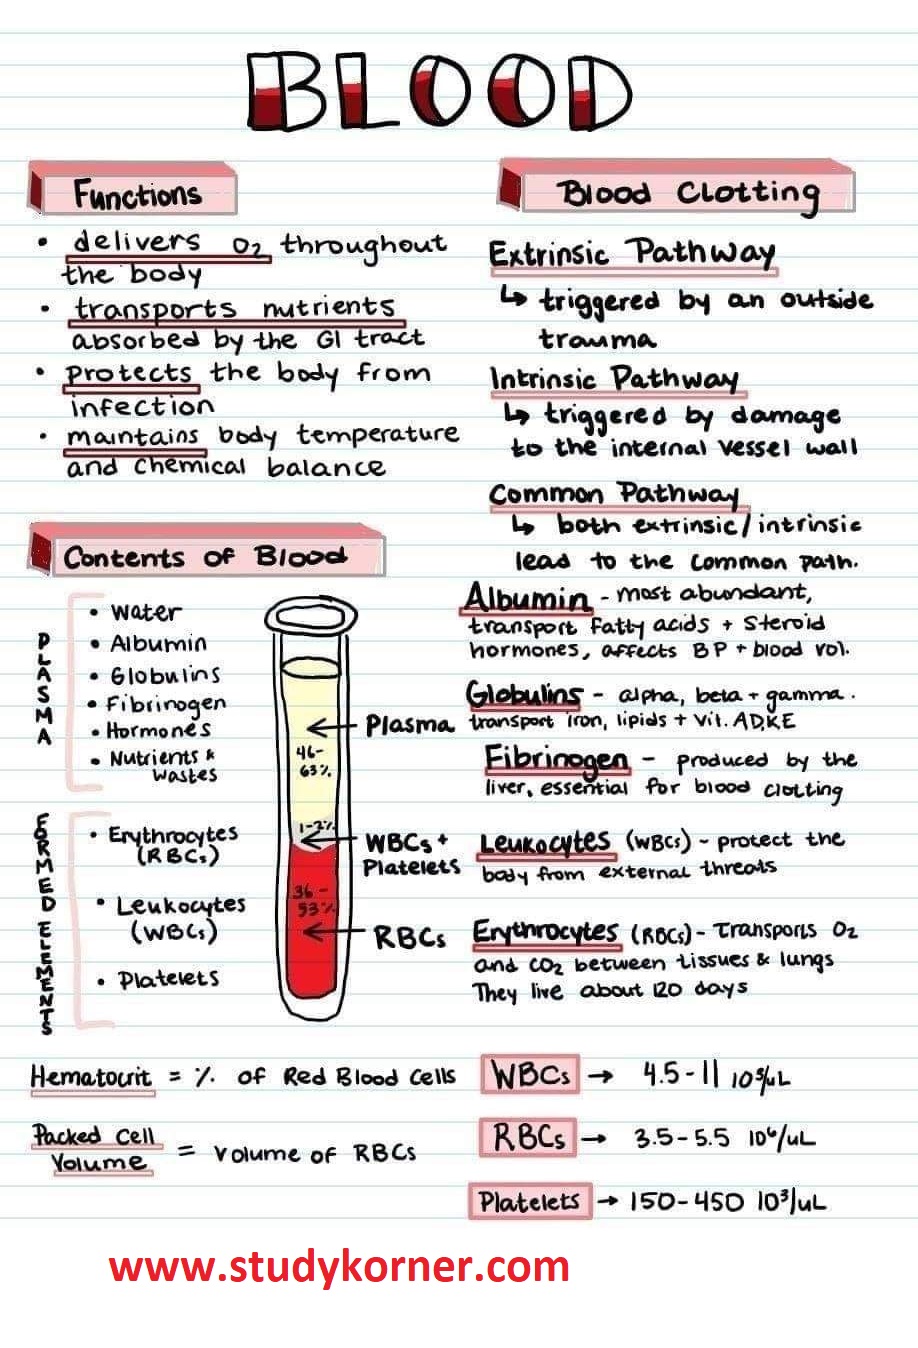 BLOOD
Functions
• delivers O2 throughout
the body
• transports nutrients
absorbed by the GI tract
• protects the body from
infection
• maintains body temperature
and chemical balance
Blood Clotting
Extrinsic Pathway
↳ triggered by an outside
trauma
Intrinsic Pathway
↳ triggered by damage
to the internal vessel wall
Common Pathway
↳ both extrinsic/intrinsic
lead to the common path.
Contents of Blood
PLASMA
• Water
• Albumin
• Globulins
• Fibrinogen
• Hormones
• Nutrients &
Wastes
FORMED ELEMENTS
• Erythrocytes
(RBCs)
• Leukocytes
(WBCs)
• Platelets
46-
63%
1-2%
36-
53%
← Plasma
← WBCs +
Platelets
← RBCs
Albumin - most abundant,
transport fatty acids + steroid
hormones, affects BP + blood vol.
Globulins - alpha, beta + gamma.
transport iron, lipids + Vit. ADKE
Fibrinogen - produced by the
liver, essential for blood clotting
Leukocytes (WBCs) - protect the
body from external threats
Erythrocytes (RBCs) - Transports O2
and CO2 between tissues & lungs
They live about 120 days
Hematocrit = % of Red Blood Cells
Packed Cell
Volume = Volume of RBCs
WBCs → 4.5-11 10³/uL
RBCs → 3.5-5.5 10⁶/uL
Platelets → 150-450 10³/uL
www.studykorner.com